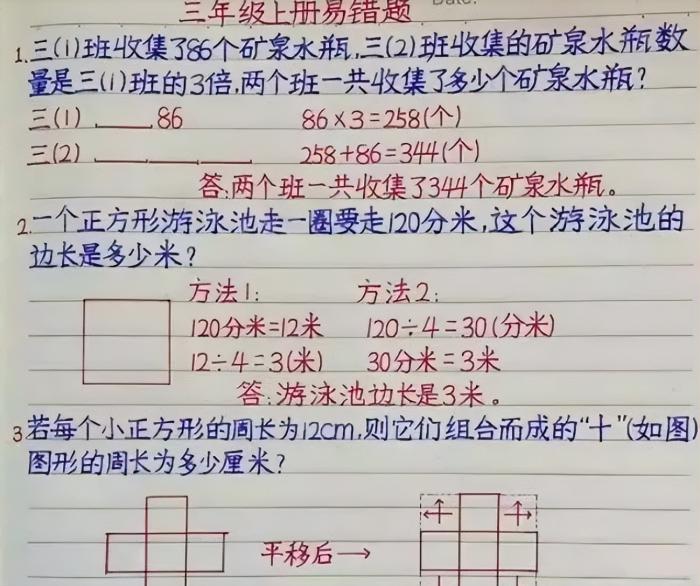 三年级上册易错题
1.三(1)班收集了86个矿泉水瓶,三(2)班收集的矿泉水瓶数
量是三(1)班的3倍,两个班一共收集了多少个矿泉水瓶?
三(1) 86 86×3=258(个)
三(2) 258+86=344(个)
答:两个班一共收集了344个矿泉水瓶。
2.一个正方形游泳池走一圈要走120分米,这个游泳池的
边长是多少米?
方法1: 方法2:
120分米=12米 120÷4=30(分米)
12÷4=3(米) 30分米=3米
答:游泳池边长是3米。
3.若每个小正方形的周长为12cm,则它们组合而成的“十”(如图)
图形的周长为多少厘米?
平移后→